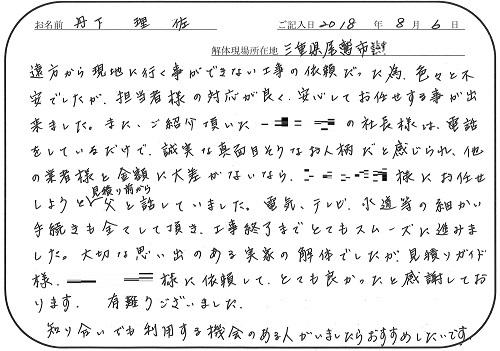 お名前 丹下 理佐 ご記入日 2018 年 8 月 6 日
解体現場所在地 三重県尾鷲市
遠方から現地に行く事ができない工事の依頼だった為、色々と不
安でしたが、担当者様の対応が良く、安心してお任せする事が出
来ました。また、ご紹介頂いた の社長様は、電話
をしているだけで、誠実な真面目そうなお人柄だと感じられ、他
の業者様と金額に大差がないなら、 様にお任せ
見積り前から
しようと 父と話していました。電気、テレビ、水道等の細かい
手続きも全てして頂き、工事終了までとてもスムーズに進みま
した。大切な思い出のある実家の解体でしたが、見積りガイド
様、 様に依頼して、とても良かったと感謝してお
ります。 有難うございました。
知り合いでも利用する機会のある人がいましたらおすすめしたいです。